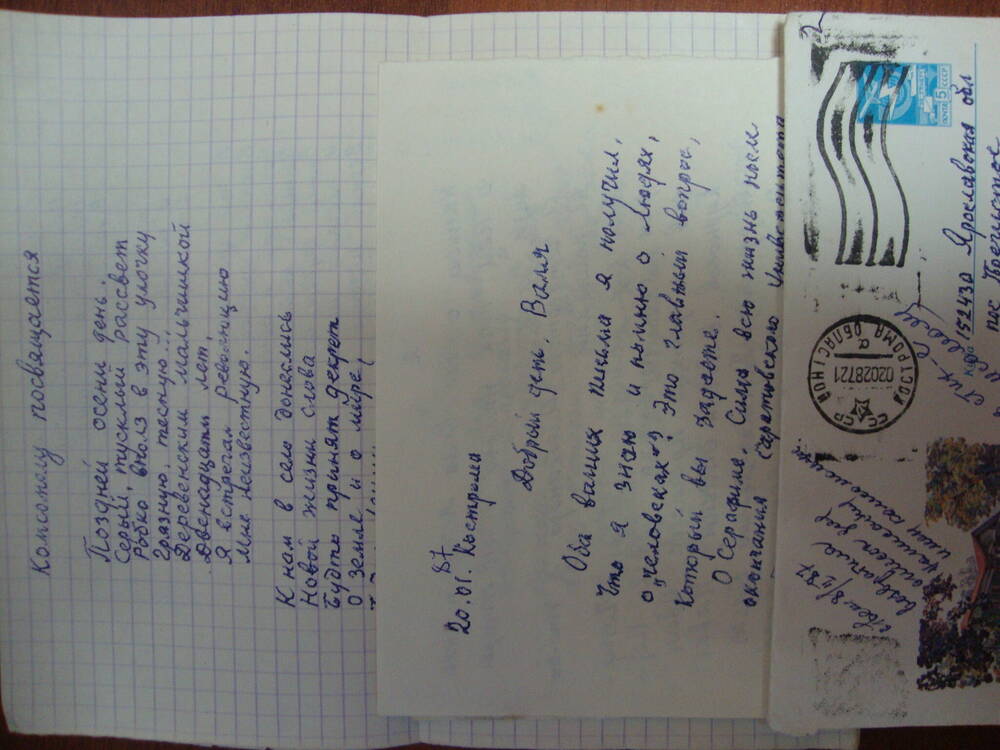 Комсомолу посвящается
Поздней осени день.
Серый, тусклый рассвет
Робко вполз в эту улочку
Грязную, тесную...
Деревенским мальчишкой
Двенадцати лет,
Я встречал Революцию
Мне неизвестную.
К нам в село донеслись
Новой жизни слова
Будто принят декрет
О земле и о мире,
87
20.01. Кострома
Добрый день, Валя
Оба ваших письма я получил,
Что я знаю и помню о людях,
о „человеках"? Это главный вопрос,
который вы задаете.
О Серафиме. Сима всю жизнь после
окончания Саратовского Университета
ответ 8/II 87
возвратила
список для
написания
имен комсомольц.
СССР
КОСТРОМА ОБЛАСТНОЙ
02028721
а
2
стих-е
ПОЧТА 5 СССР
Куда 152430 Ярославская обл
пос Пречистое